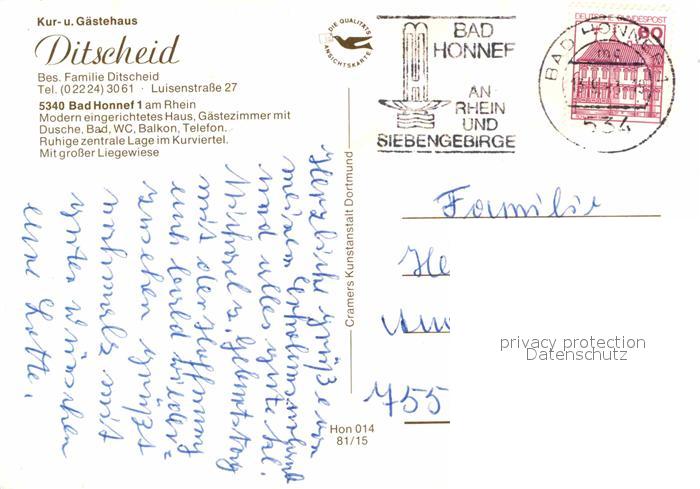 Kur- u. Gästehaus
Ditscheid
Bes. Familie Ditscheid
Tel. (02224) 3061 · Luisenstraße 27
5340 Bad Honnef 1 am Rhein
Modern eingerichtetes Haus, Gästezimmer mit
Dusche, Bad, WC, Balkon, Telefon.
Ruhige zentrale Lage im Kurviertel.
Mit großer Liegewiese
DIE QUALITÄTS
ANSICHTSKARTE
BAD
HONNEF
AN
RHEIN
UND
SIEBENGEBIRGE
DEUTSCHE BUNDESPOST
BAD HONNEF 1
534
Herzliche Grüße von
meinem
und alles Gute
Geburtstag
mit der Hoffnung
euch bald wieder
zu sehen grüßt
nochmals mit
guten Wünschen
eure Lotte.
Cramers Kunstanstalt Dortmund
Hon 014
81/15
Familie
He
755
privacy protection
Datenschutz